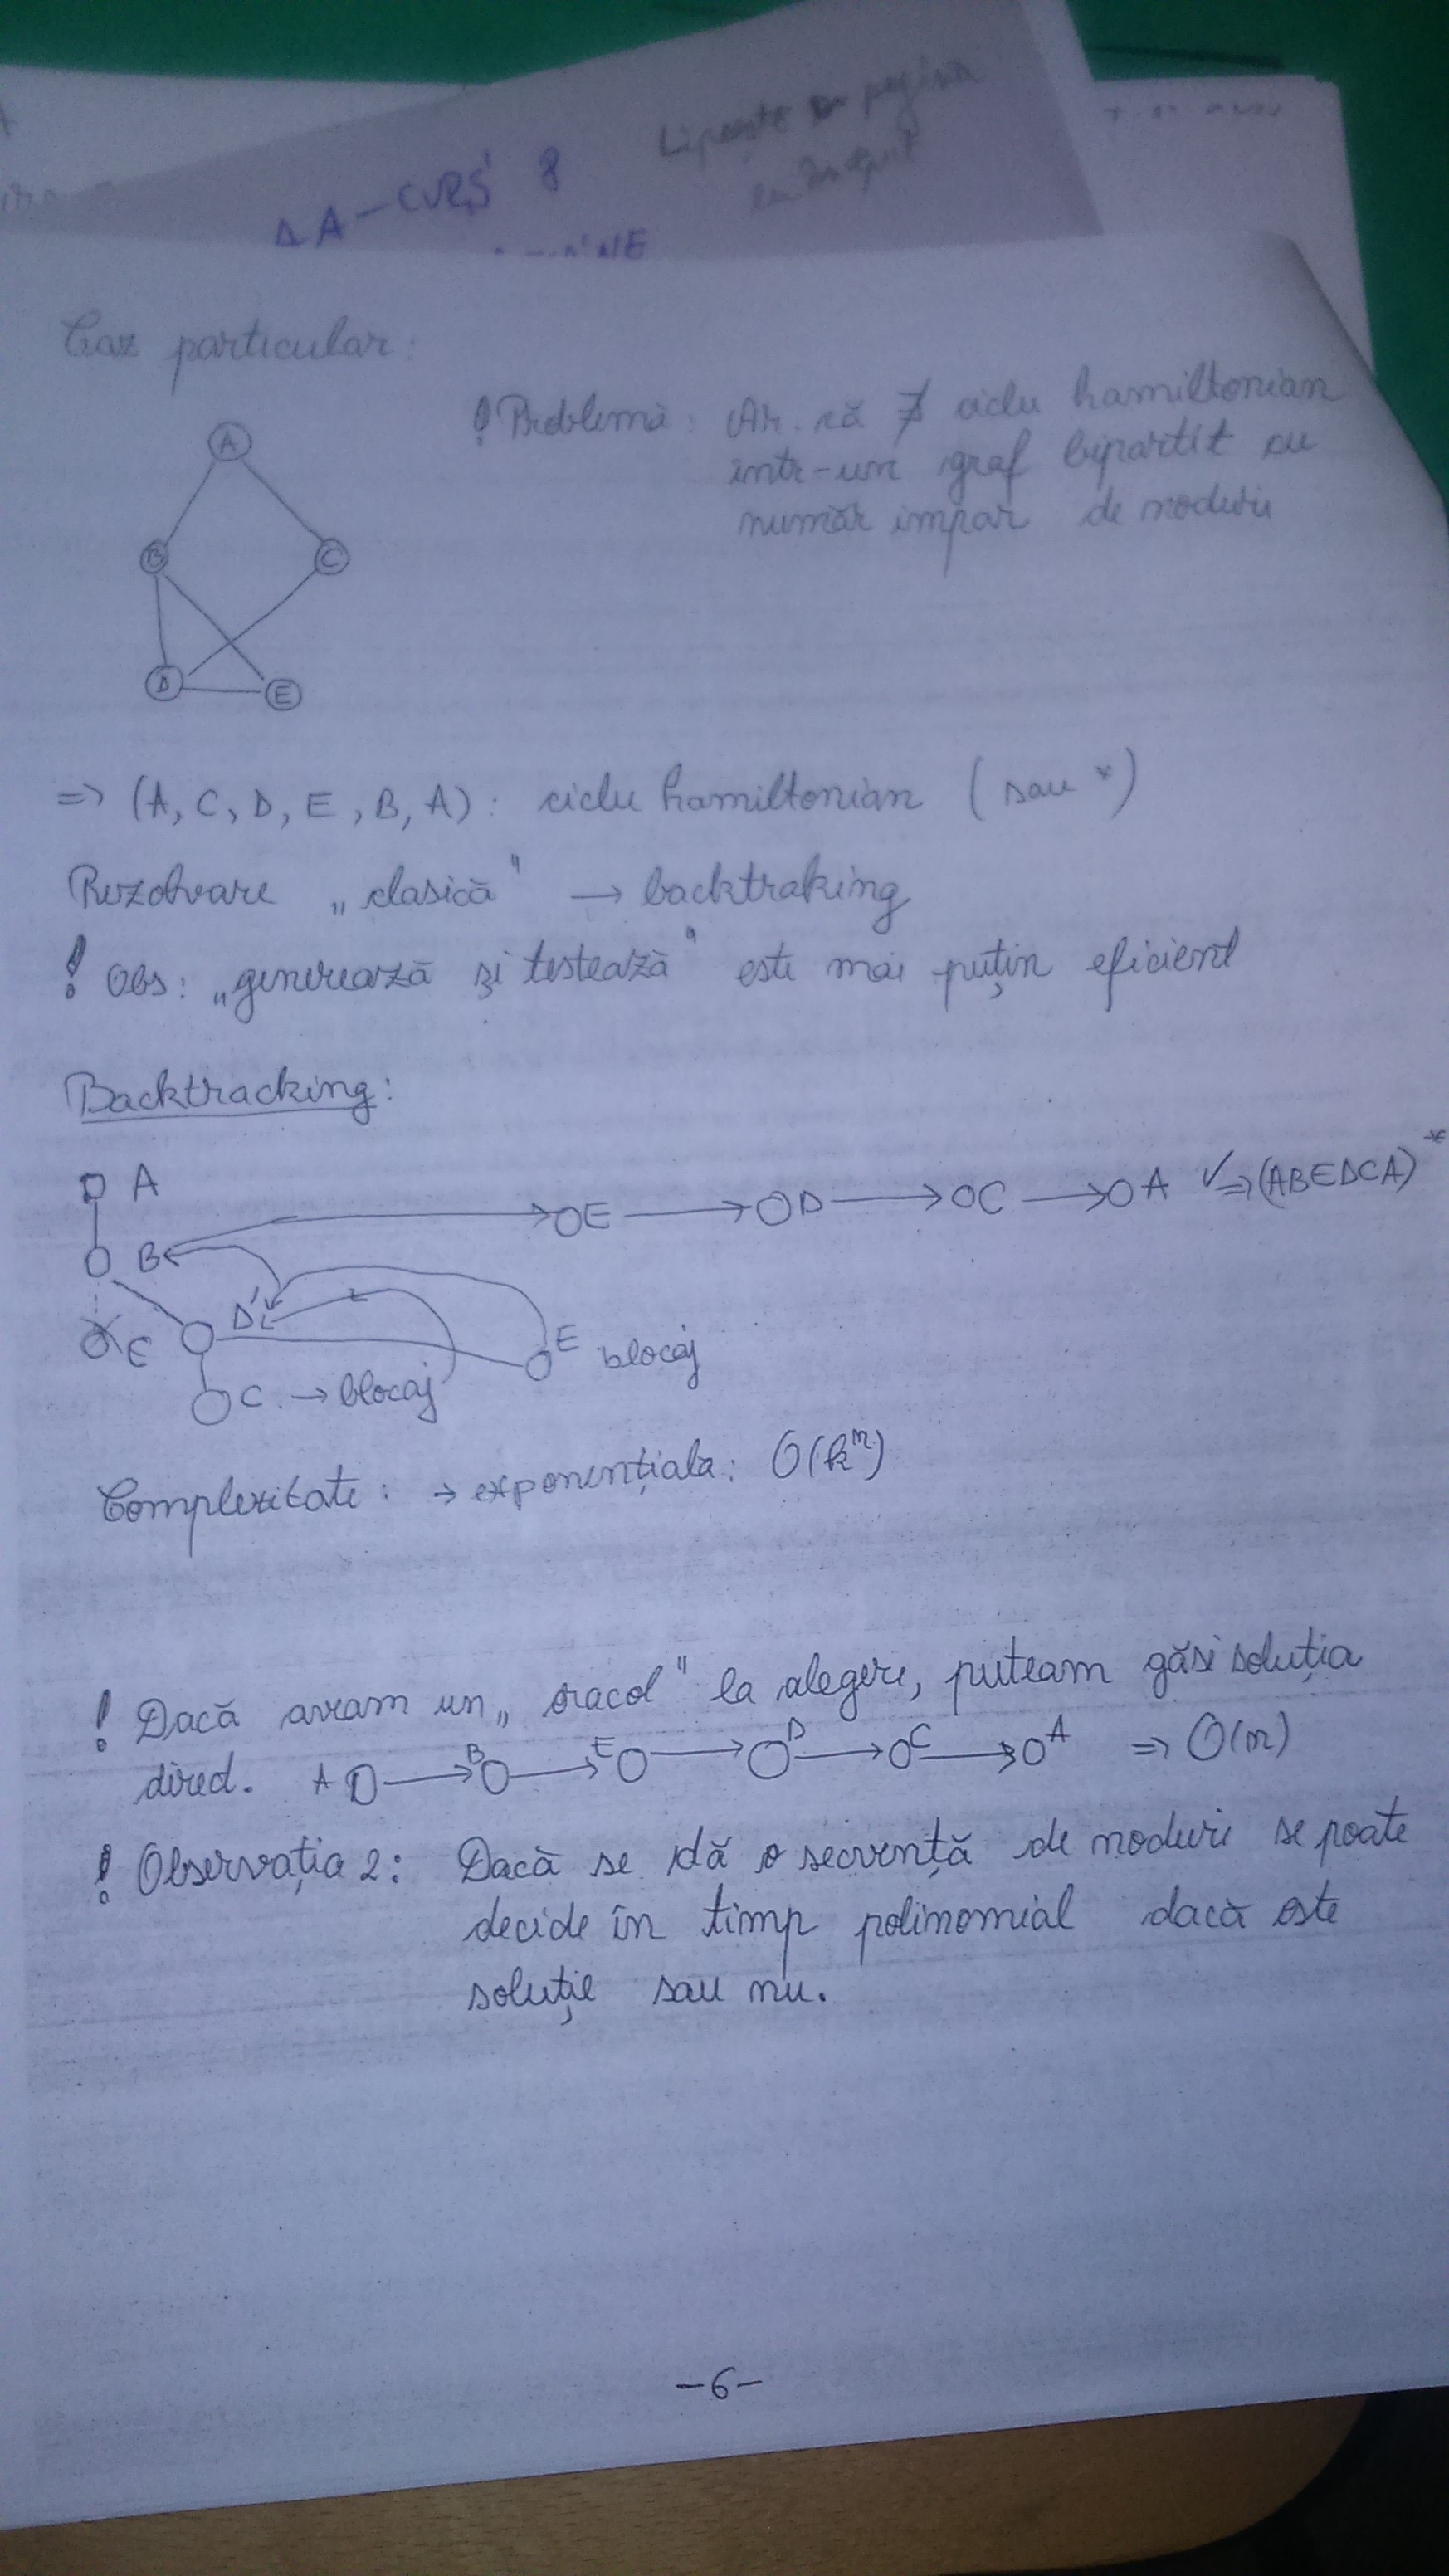 Lipește în pagina
la început
AA - CURS 8
Caz particular:
A
B
C
D
E
! Problemă: Ar. că ∄ ciclu hamiltonian
într-un graf bipartit cu
număr impar de noduri
=> (A, C, D, E, B, A): ciclu hamiltonian (sau *)
Rezolvare „clasică" → backtraking
! Obs: „generează și testează" este mai puțin eficient
Backtracking:
A
B
E → D → C → A ✓ => (ABEDCA)*
C
D
E blocaj
C → blocaj
Complexitate: → exponențiala: O(kⁿ)
! Dacă aveam un „oracol" la alegere, puteam găsi soluția
direct. A → B → E → D → C → A => O(n)
! Observația 2: Dacă se dă o secvență de noduri se poate
decide în timp polinomial dacă este
soluție sau nu.
-6-